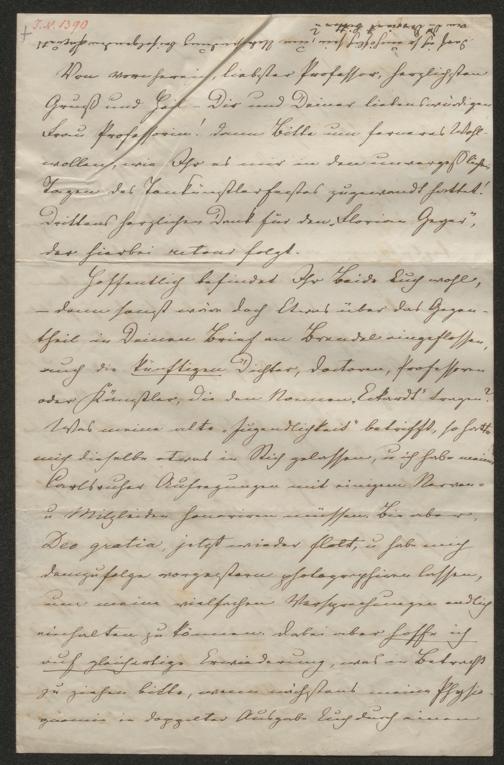 I.N. 1390
Von vornherein, liebster Professor, herzlichsten
Gruß und Heil Dir und Deiner liebenswürdigen
Frau Professorin! Dann Bitte um ferneres Wohl-
wollen, wie Ihr es mir in den unvergeßlichen
Tagen des Tonkünstlerfestes zugewandt hattet!
Drittens herzlichen Dank für den „Florian Geyer“,
der hierbei retour folgt.
Hoffentlich befindet Ihr Beide Euch wohl,
– denn sonst wäre doch Etwas über das Gegen-
theil in Deinen Brief an Brendel eingeflossen,
auch die künftigen Dichter, Doctoren, Professoren
oder Künstler, die den Namen „Eckardt“ tragen?
Was meine alte „Jugendlichkeit“ betrifft, so hatte
mich dieselbe etwas in Stich gelassen, u ich habe meine
Carlsruher Aufregungen mit einigem Nerven-
u Mitleiden honoriren müssen. Bin aber,
Deo gratia, jetzt wieder flott, u habe mich
demzufolge vorgestern photographiren lassen,
um meine vielfachen Versprechungen endlich
einhalten zu können. Dabei aber hoffe ich
auf gleichartige Erwiederung, was in Betracht
zu ziehen bitte, wenn nächstens meine Physio-
gnomie in doppelter Ausgabe Euch durch einen